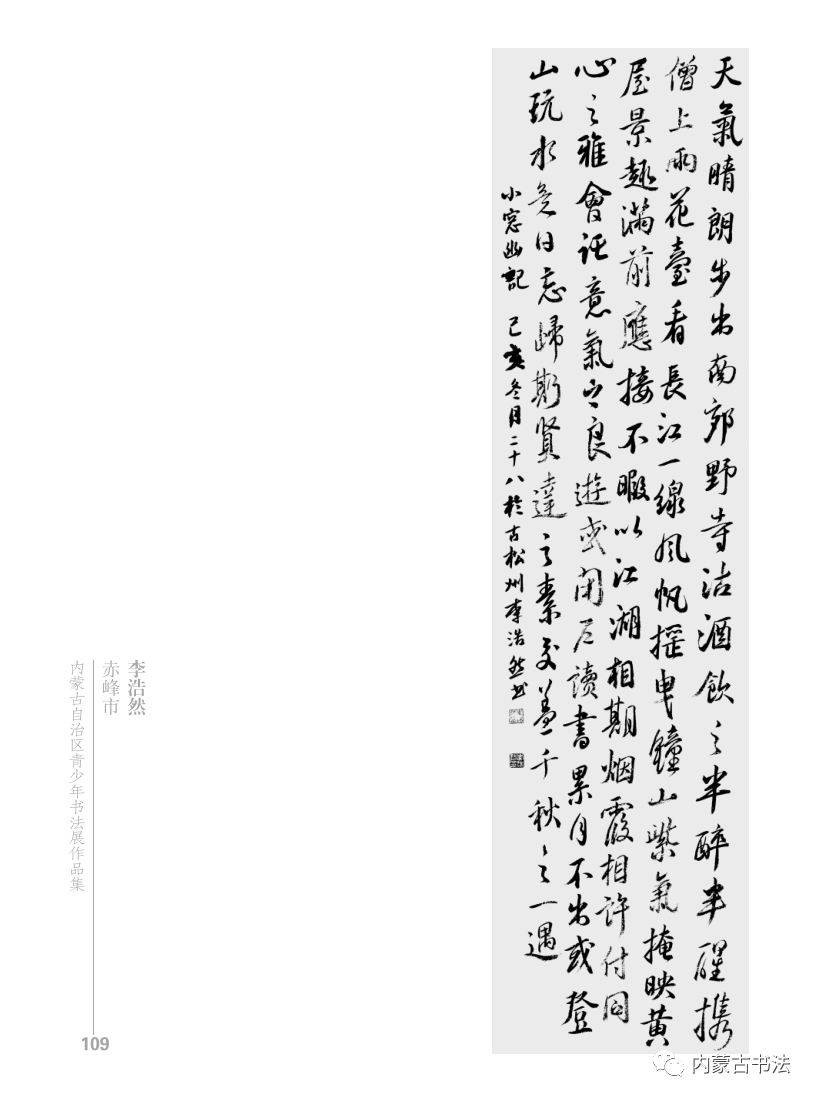 天氣晴朗步出南郭野寺沽酒飲之半醉半醒攜
僧上雨花臺看長江一線風帆摇曳鐘山紫氣掩映黄
屋景趣满前應接不暇以江湖相期烟霞相許付同
心之雅會託意氣之良遊或閉户讀書累月不出或登
山玩水竟日忘歸斯賢達之素交蓋千秋之一遇
小窓幽記 己亥冬月二十八於古松州李浩然书
李浩然
赤峰市
内蒙古自治区青少年书法展作品集
109
内蒙古书法